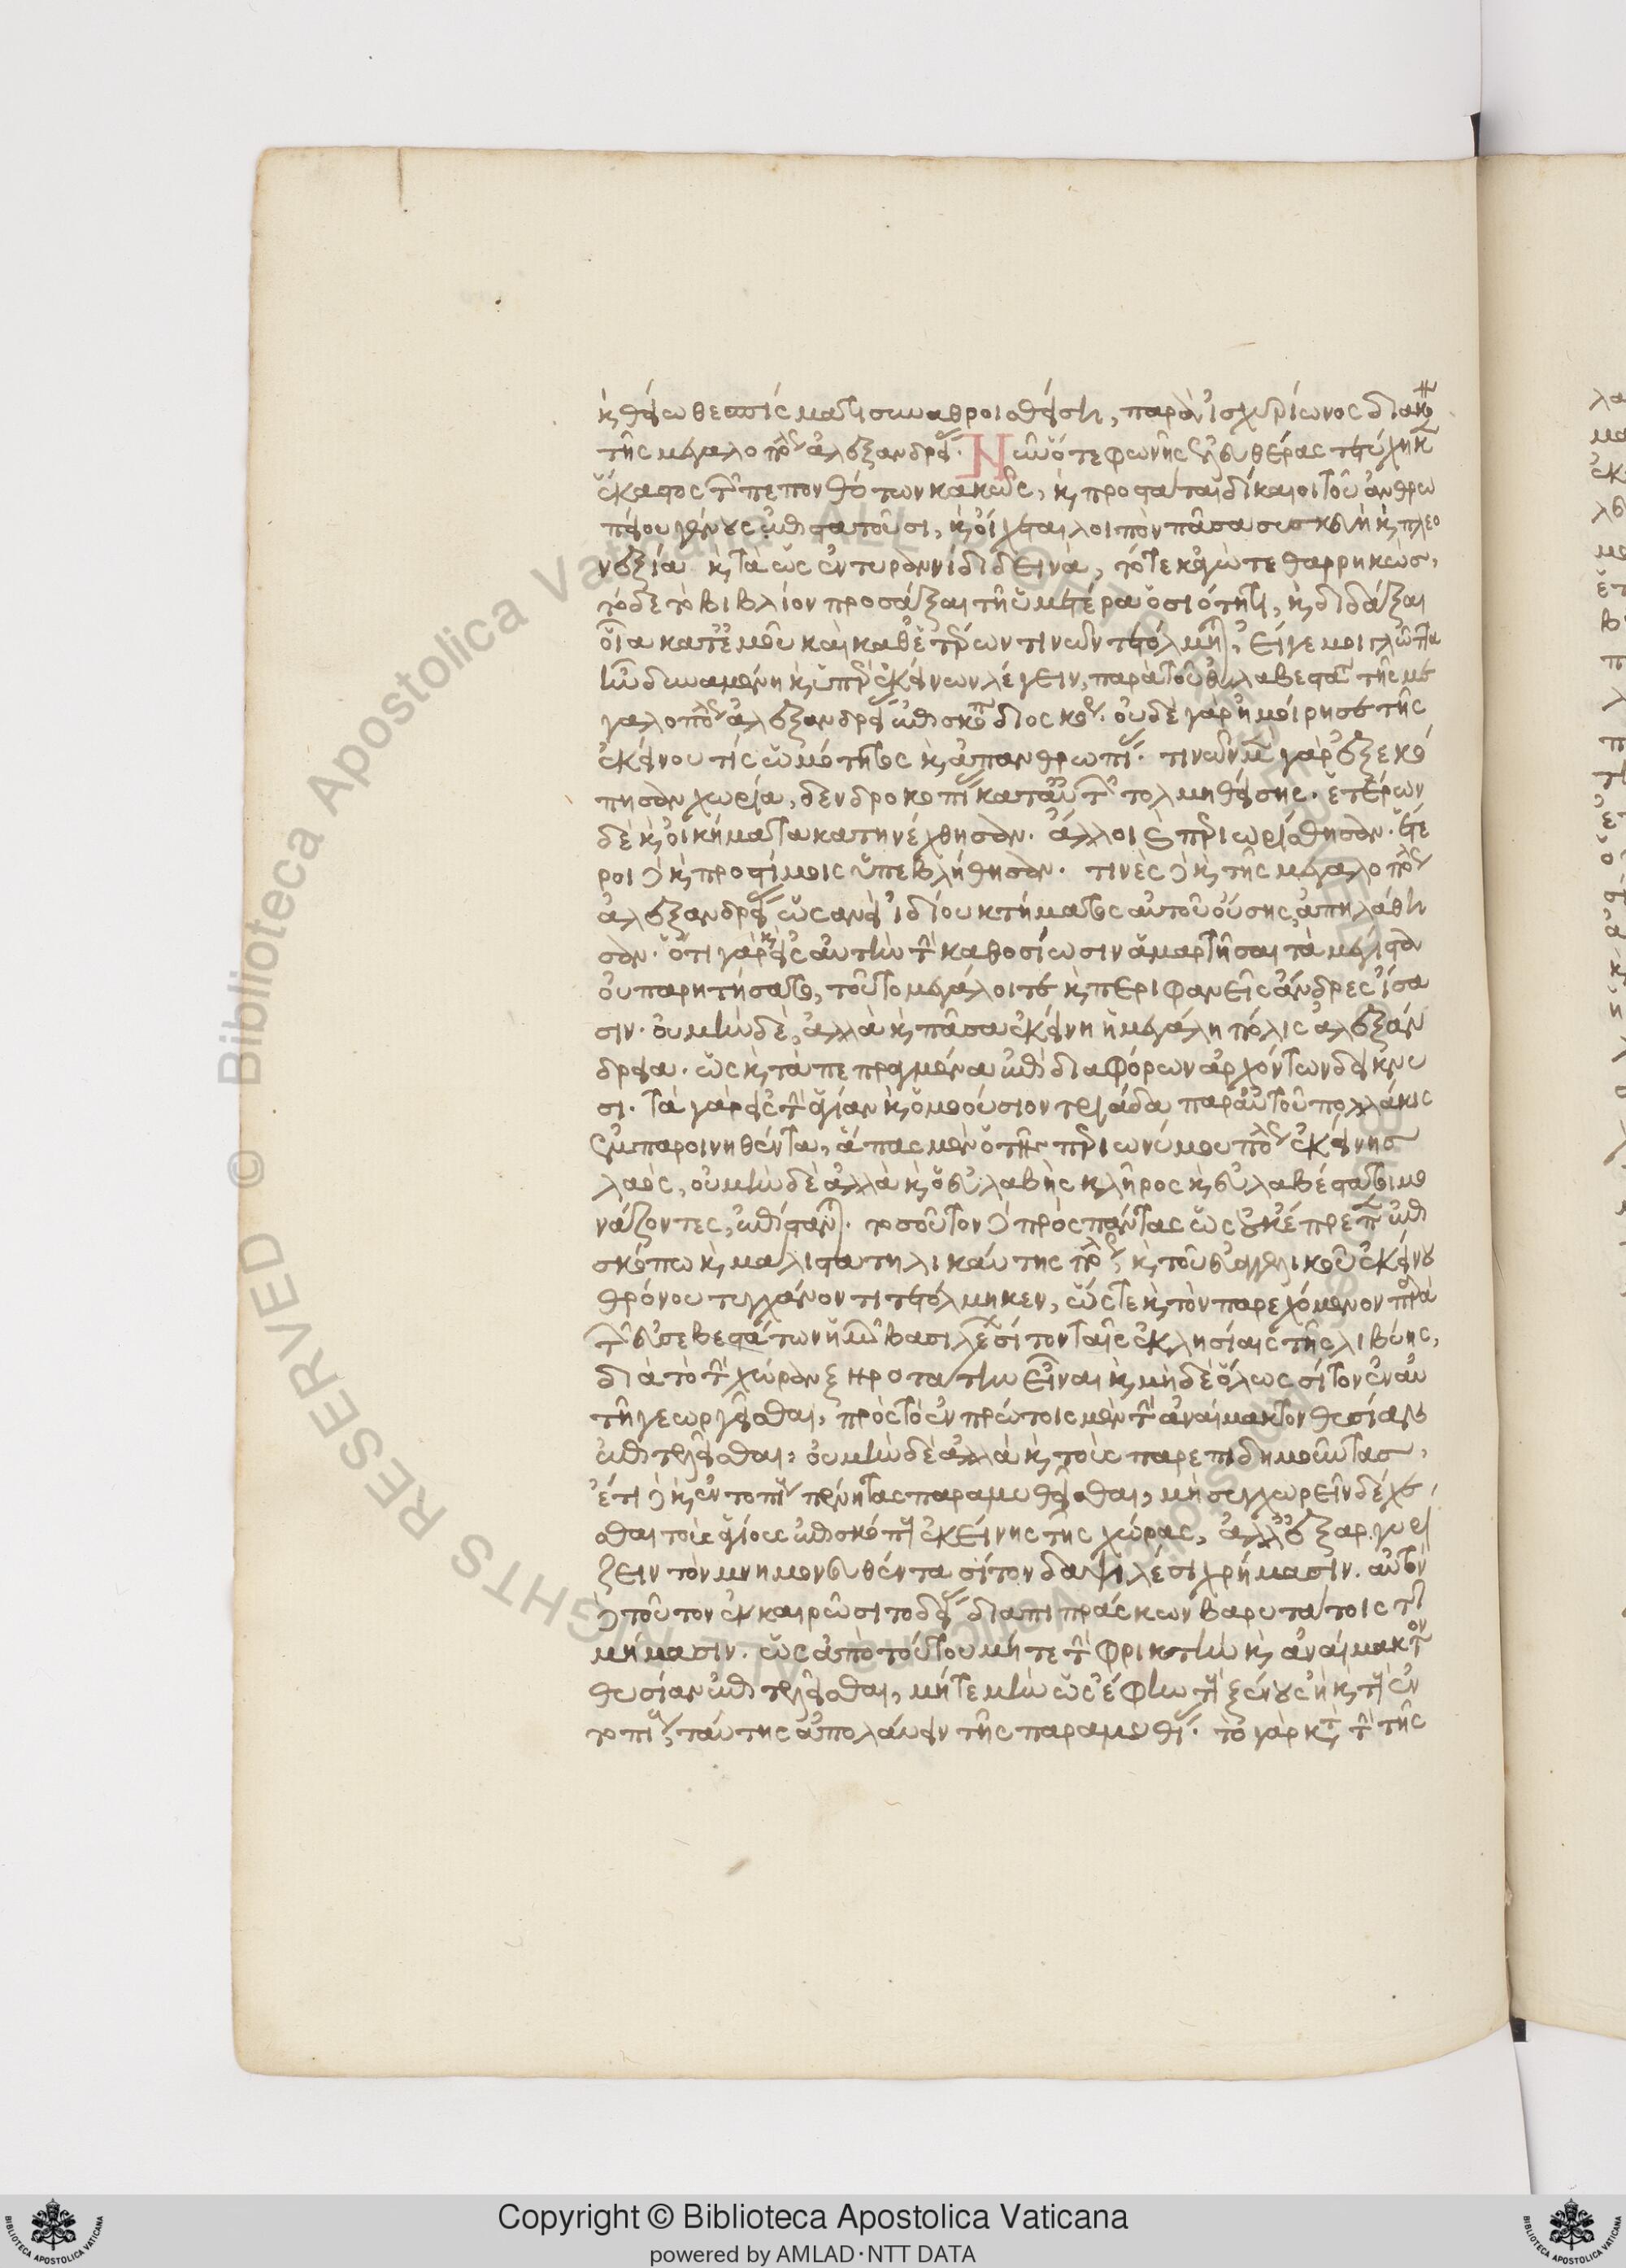 κ θείῳ θεσπίσματι συναθροισθείσῃ, παρὰ ἰσχυρίωνος διακό
τῆς μεγαλοπόλεως ἀλεξανδρείας. Νῦν ὅτε φωνῆς ἐλευθέρας τετύχηκεν
ἕκαστος τῶν πεπονθότων κακῶς, κ προστάται δίκαιοι τοῦ ἀνθρω
πείου γένους ἐπιστατοῦσι, κ οἴχεται λοιπὸν πᾶσα συσκευὴ κ πλεο
νεξία κ τὰ ὡς ἐν τυραννίδι δεινὰ, τότε κἀγώ τεθαρρηκως,
τόδε τὸ βιβλίον προσάξαι τῇ ὑμετέρᾳ ὁσιότητι, κ διδάξαι
οἷα κατ' ἐμοῦ καὶ καθ' ἑτέρων τινων τετόλμηται, εἴγε μοι γλῶττα
ἦν δυναμένη κ ὑπὲρ ἐκείνων λέγειν, παρὰ τοῦ εὐλαβεστάτου τῆς με
γαλοπόλεως ἀλεξανδρείας ἐπισκόπου διοσκόρου. οὐδὲ γὰρ ἠμοίρησέ τις
ἐκείνου τῆς ὠμότητος κ ἀπανθρωπίας. τινῶν μὲν γὰρ ἐξεκό
πησαν χωρία, δενδροκοπίας κατ' αὐτῶν τολμηθείσης. ἑτέρων
δὲ κ οἰκήματα κατηνέχθησαν. ἄλλοι δὲ περιωρίσθησαν. ἕτε
ροι δὲ κ προστίμοις ὑπεβλήθησαν. τινὲς δὲ κ τῆς μεγαλοπόλεως
ἀλεξανδρείας ὡς ἀνεὶ ἰδίου κτήματος αὐτοῦ οὔσης, ἀπηλάθη
σαν. ὅτι γὰρ κ εἰς αὐτὴν τὴν καθοσίωσιν ἁμαρτῆσαι τὰ μέγιστα
οὐ παρητήσατο, τοῦτο μεγάλοι τε κ περιφανεῖς ἄνδρες ἴσα
σιν. οὐ μὴν δὲ, ἀλλὰ κ πᾶσα ἐκείνη ἡ μεγάλη πόλις ἀλεξάν
δρεια. ὡς κ τὰ πεπραγμένα ἐπὶ διαφόρων ἀρχόντων δείκνυ
σι. τὰ γὰρ εἰς τὴν ἁγίαν κ ὁμοούσιον τριάδα παρ' αὐτοῦ πολλάκις
ἐμπαροινηθέντα, ἅπας μὲν ὁ τῆς περιωνύμου πόλεως ἐκείνης
λαὸς, οὐ μὴν δὲ ἀλλὰ κ ὁ εὐλαβὴς κλῆρος κ εὐλαβέστατοι μο
νάζοντες, ἐπίστανται. τοσοῦτον δὲ πρὸς πάντας ὡς οὐκ ἔπρεπεν ἐπι
σκόπῳ κ μάλιστα τηλικαύτης πόλεως κ τοῦ εὐαγγελικοῦ ἐκείνου
θρόνου τυγχάνοντι τετόλμηκεν, ὥστε κ τὸν παρεχόμενον παρὰ
τῶν εὐσεβεστάτων ἡμῶν βασιλέων σῖτον ταῖς ἐκκλησίαις τῆς λιβύης,
διὰ τὸ τὴν χώραν ξηροτάτην εἶναι κ μὴ δὲ ὅλως σῖτον ἐν αὐ
τῇ γεωργεῖσθαι, πρὸς τὸ ἐν πρώτοις μὲν τὴν ἀναίμακτον θυσίαν
ἐπιτελεῖσθαι, οὐ μὴν δὲ ἀλλὰ κ τοὺς παρεπιδημοῦντας,
ἔτι δὲ κ ἐν τόποις πένητας παραμυθεῖσθαι, μὴ συγχωρεῖν δέχε
σθαι τοὺς ἁγίους ἐπισκόπους ἐκείνης τῆς χώρας, ἀλλ' ἐξαργυρί
ζειν τὸν μνημονευθέντα σῖτον δαψιλέσι χρήμασιν. αὐτὸν
δὲ τοῦτον ἐν καιρῷ σιτοδείας διαπιπράσκων βαρυτάτοις τι
μήμασιν. ὡς ἀπὸ τούτου μήτε τὴν φρικτὴν κ ἀναίμακτον
θυσίαν ἐπιτελεῖσθαι, μήτε μὴν ὡς ἔφην τοὺς ξένους ἢ κ τοὺς ἐν
τόποις ταύτης ἀπολαύειν τῆς παραμυθίας. τὸ γὰρ κατὰ τὴν τῆς